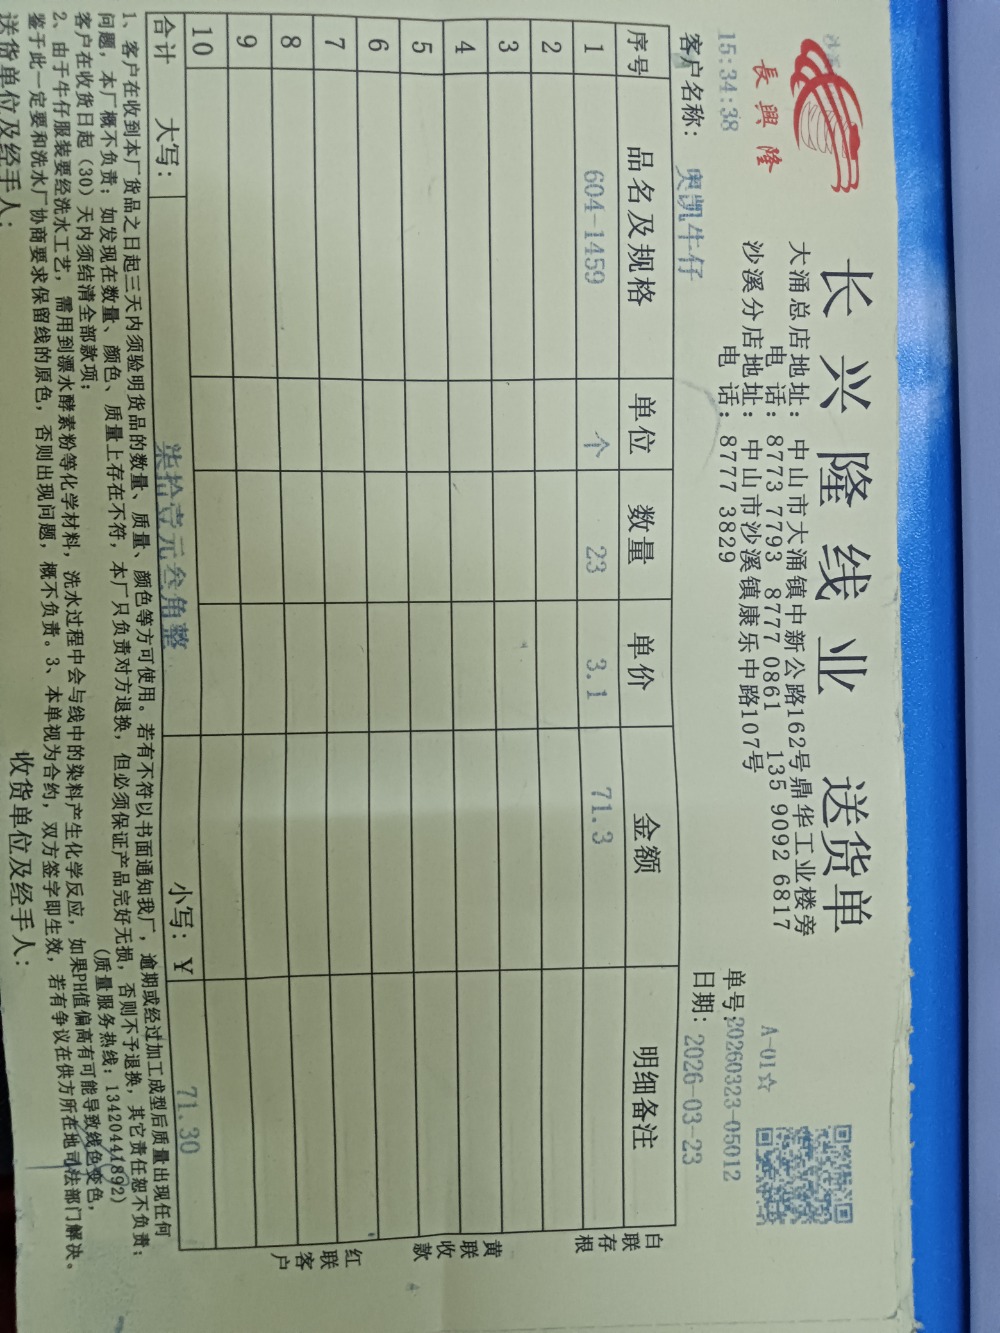 長興隆
长兴隆线业 送货单
大涌总店地址：中山市大涌镇中新公路162号鼎华工业楼旁
电 话：8773 7793 8777 0861 135 9092 6817
沙溪分店地址：中山市沙溪镇康乐中路107号
电 话：8777 3829
A-01☆
15:34:38
单号:20260323-05012
客户名称： 奥凯牛仔
日期： 2026-03-23
序号 品名及规格 单位 数量 单价 金额 明细备注
1 604-1459 个 23 3.1 71.3
2
3
4
5
6
7
8
9
10
合计 大写： 柒拾壹元叁角整 小写：￥ 71.30
白联存根
黄联收款
红联客户
1、客户在收到本厂货品之日起三天内须验明货品的数量、质量、颜色等方可使用。若有不符以书面通知我厂，逾期或经过加工成型后质量出现任何
问题，本厂概不负责；如发现在数量、颜色、质量上存在不符，本厂只负责对方退换，但必须保证产品完好无损，否则不予退换，其它责任恕不负责；
客户在收货日起（30）天内须结清全部款项；
(质量服务热线：13420441892)
2、由于牛仔服装要经洗水工艺，需用到漂水酵素粉等化学材料，洗水过程中会与线中的染料产生化学反应，如果PH值偏高有可能导致线色变色，
鉴于此一定要和洗水厂协商要求保留线的原色，否则出现问题，概不负责。3、本单视为合约，双方签字即生效，若有争议在供方所在地司法部门解决。
送货单位及经手人： 收货单位及经手人：